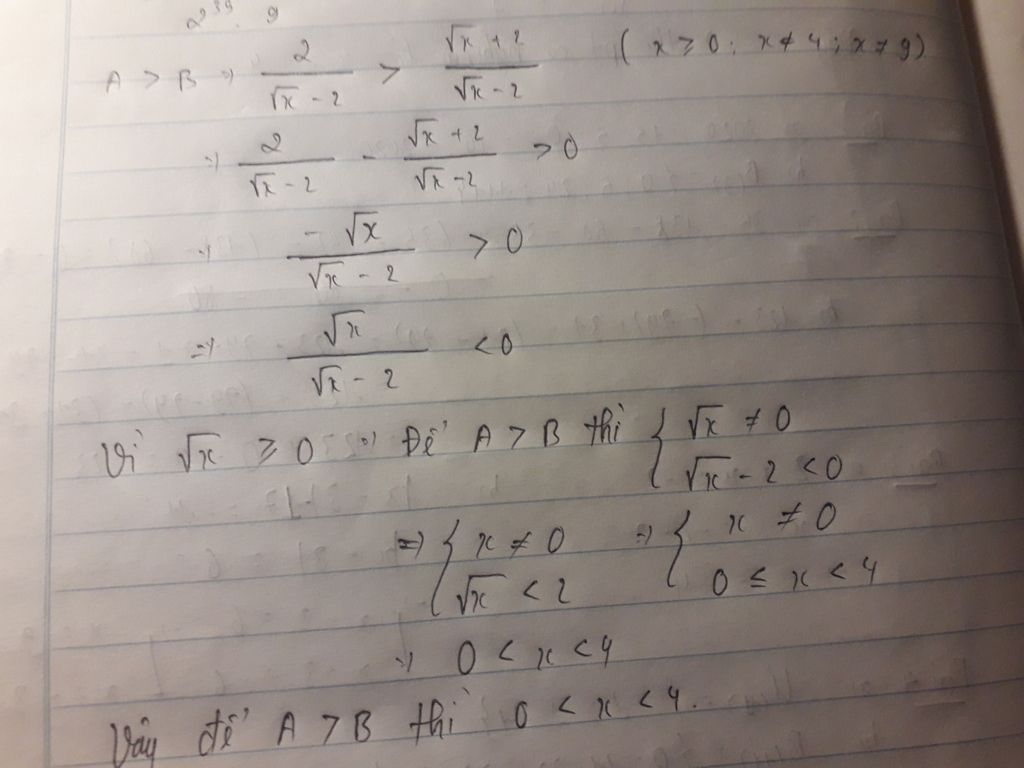 2³⁹ . 9
A > B => 2/(√x - 2) > (√x + 2)/(√x - 2) ( x ≥ 0 ; x ≠ 4 ; x ≠ 9)
=> 2/(√x - 2) - (√x + 2)/(√x - 2) > 0
=> -√x/(√x - 2) > 0
=> √x/(√x - 2) < 0
Vì √x ≥ 0 => Để A > B thì { √x ≠ 0
√x - 2 < 0
=> { x ≠ 0 => { x ≠ 0
√x < 2 0 ≤ x < 4
=> 0 < x < 4
Vậy để A > B thì 0 < x < 4.